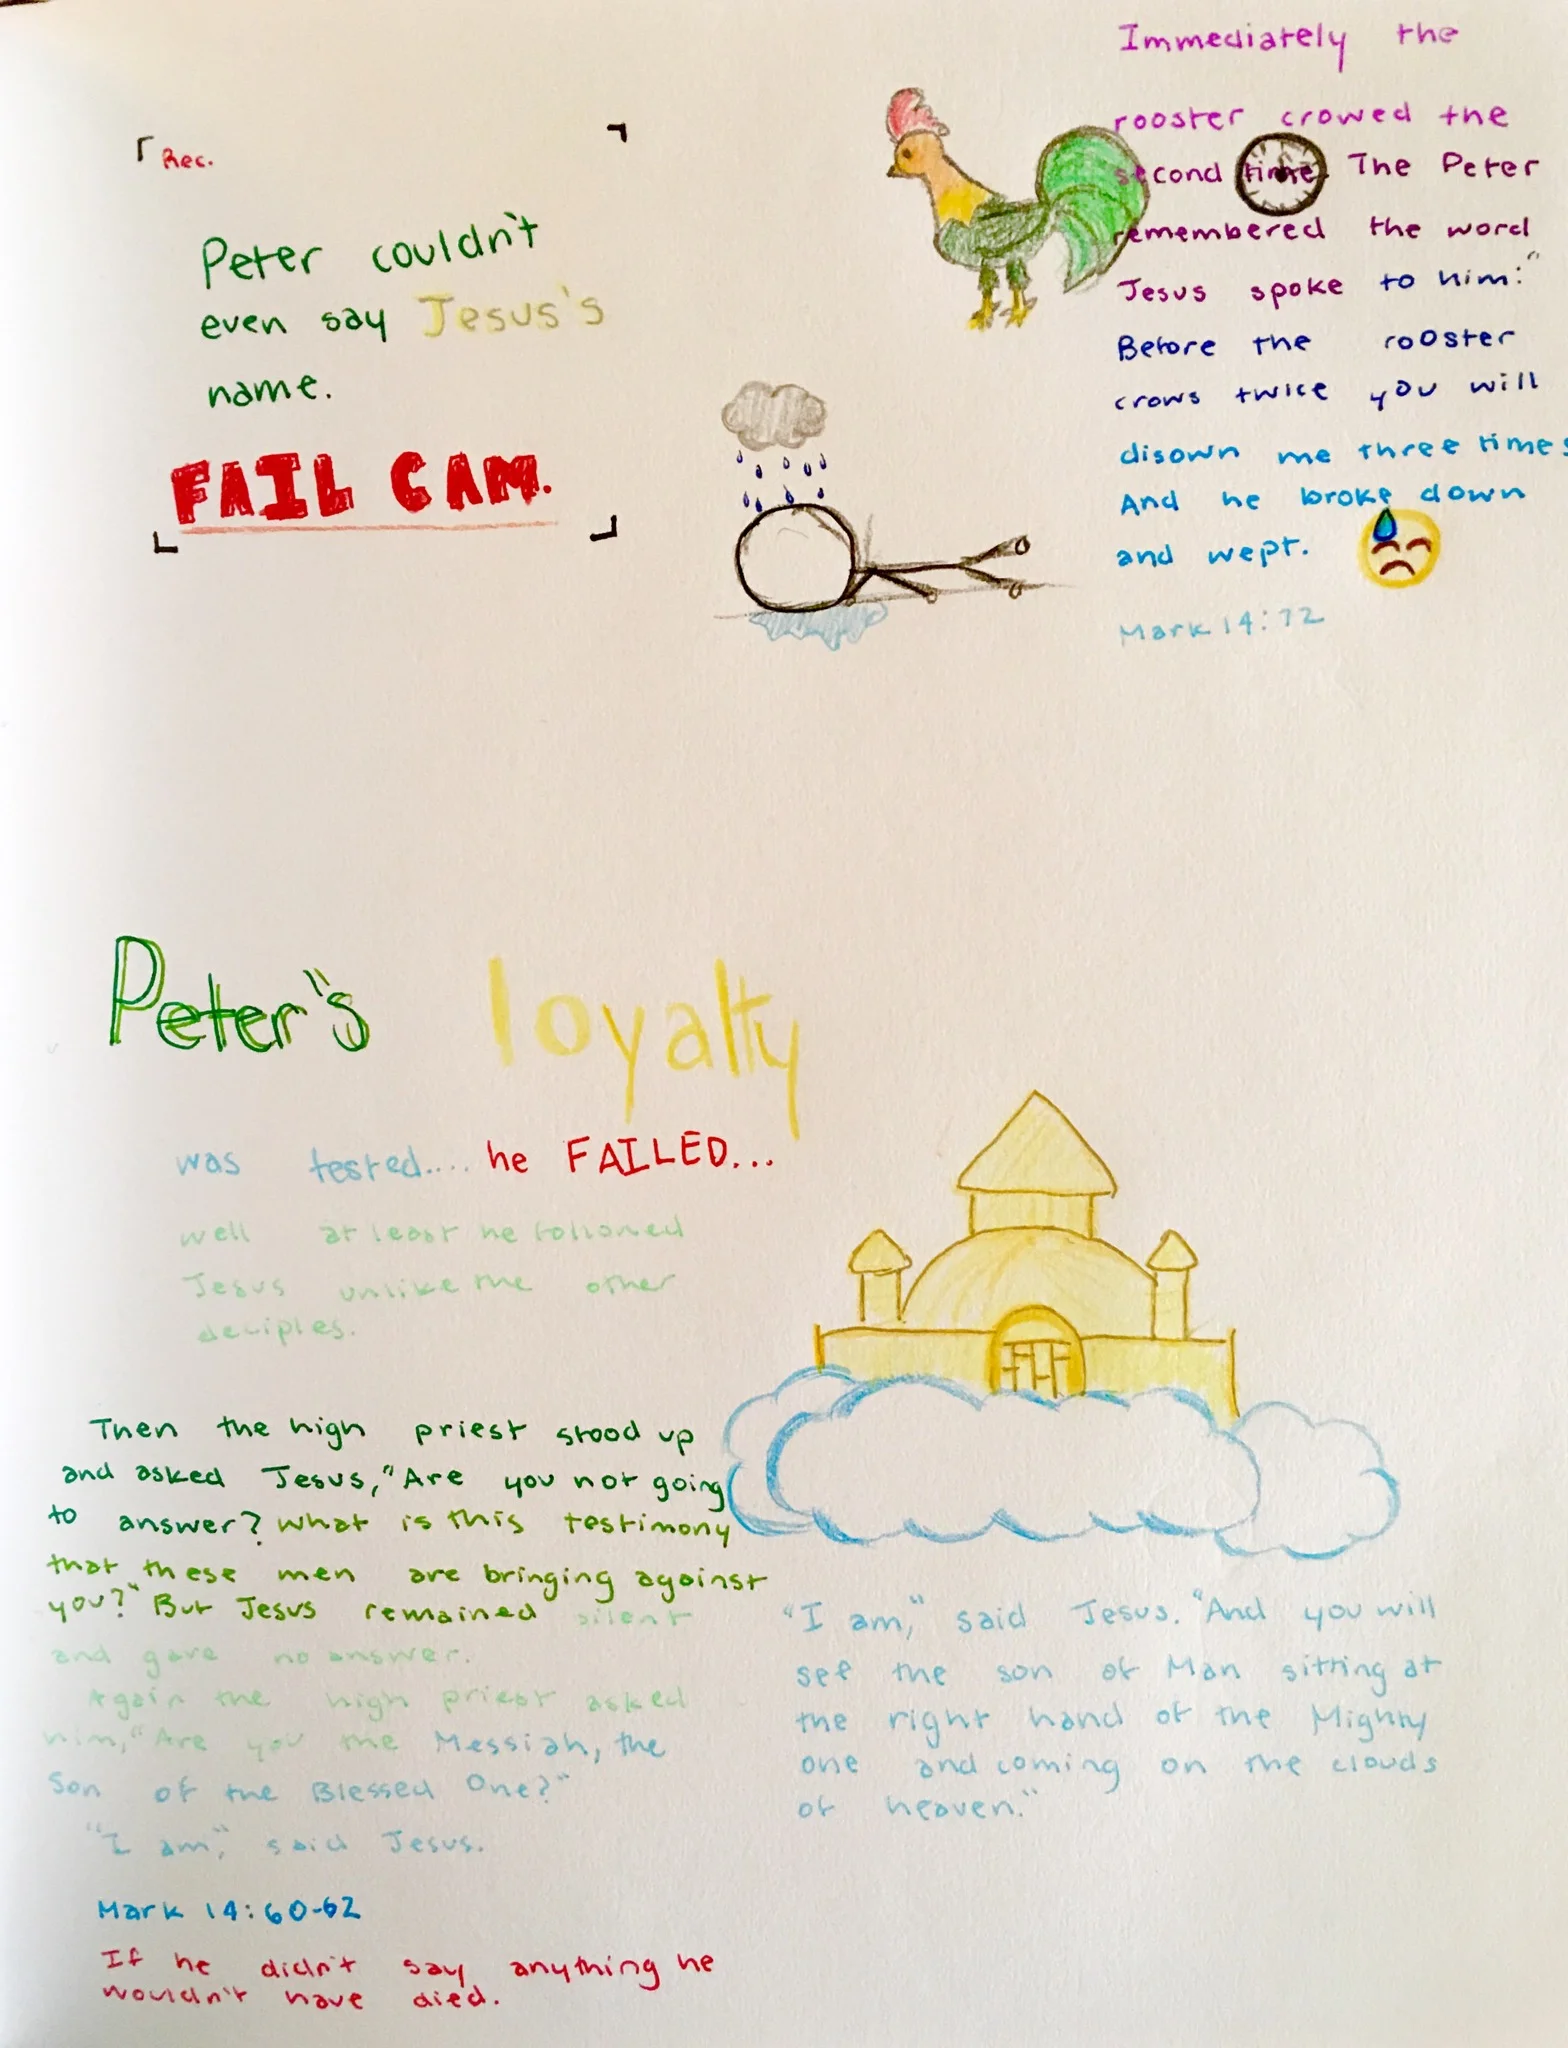 Rec.
Peter couldn't
even say Jesus's
name.
FAIL CAM.
Immediately the
rooster crowed the
second time. The Peter
remembered the word
Jesus spoke to him:"
Before the rooster
crows twice you will
disown me three times
And he broke down
and wept.
Mark 14:72
Peter's loyalty
was tested.... he FAILED...
well at least he followed
Jesus unlike the other
deciples.
Then the high priest stood up
and asked Jesus, "Are you not going
to answer? What is this testimony
that these men are bringing against
you?" But Jesus remained silent
and gave no answer.
Again the high priest asked
him, "Are you the Messiah, the
Son of the Blessed One?"
"I am," said Jesus.
Mark 14:60-62
If he didn't say anything he
wouldn't have died.
"I am," said Jesus. "And you will
see the son of Man sitting at
the right hand of the Mighty
one and coming on the clouds
of heaven."